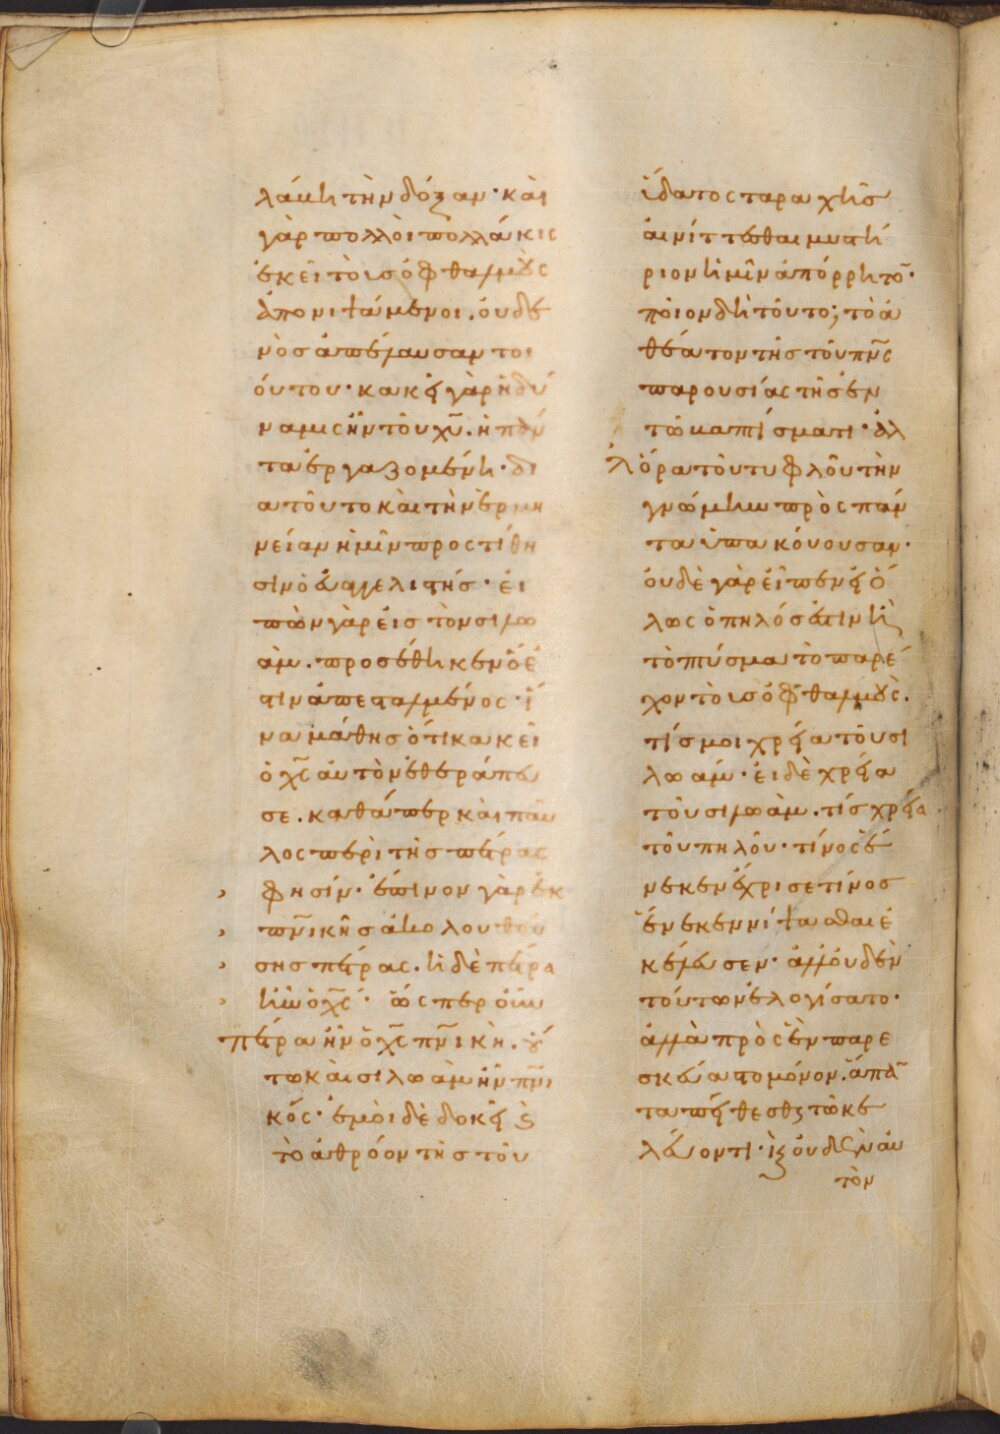 λάμη τὴν δόξαν· καὶ
γὰρ πολλοὶ πολλάκις
ἐκεῖ τοὺς ὀφθαλμοὺς
ἀπονιψάμενοι. οὐδε
νὸς ἀπέλαυσαν τοι
ούτου· κακεῖ γὰρ ἡ δύ
ναμις ἦν τοῦ χῦ. ἡ πάν
τα ἐργαζομένη· δι
α τοῦτο καὶ τὴν ἑρμη
νείαν ἡμῖν προστίθη
σιν ὁ εὐαγγελιστής· εἰ
πὼν γὰρ εἰς τὸν σιλω
ὰμ. προσέθηκεν ὅ ἐ
στιν ἀπεσταλμένος· ἵ
να μάθης ὅτι κακεῖ
ὁ χς αὐτὸν ἐθεράπευ
σε. καθάπερ καὶ παῦ
λος περὶ τῆς πέτρας
φησίν· ἔπινον γὰρ ἐκ
πνικῆς ἀκολουθού
σης πέτρας. ἡ δὲ πέτρα
ἦν ὁ χς· ὥσπερ οὖν
πέτρα ἦν ὁ χς πνικὴ. οὕ
τω καὶ σιλωὰμ ἦν πνι
κός· ἐμοὶ δὲ δοκεῖ ϗ
τὸ ἀθρόον τῆς τοῦ
ὕδατος ταραχῆς
αἰνίττεσθαι μυστή
ριον ἡμῖν ἀπόρρητο̄·
ποῖον δὴ τοῦτο; τὸ ἀ
θέατον τῆς τοῦ πνς
παρουσίας τῆς ἐν
τῶ βαπτίσματι· ἀλ
λ' ὅρα τοῦ τυφλοῦ τὴν
γνώμην πρὸς πάν
τα ὑπακούουσαν·
οὐδὲ γὰρ εἶπεν εἰ ὅ
λως ὁ πηλός ἐστιν ἢ
τὸ πτύσμα τὸ παρέ
χον τοὺς ὀφθαλμοὺς.
τίς μοι χρεία τοῦ σι
λωάμ· εἰ δὲ χρεία
τοῦ σιλωὰμ. τίς χρεία
τοῦ πηλοῦ· τίνος ἕ
νεκεν ἔχρισε τίνος
ἕνεκεν νίψασθαι ἐ
κέλευσεν· ἀλλ' οὐδὲν
τούτων ἐλογίσατο·
ἀλλὰ πρὸς ἓν παρε
σκεύαστο μόνον. ἅπᾱ
τα πείθεσθαι τῶ κε
λεύοντι· ϗ οὐδὲν αὐ
τὸν